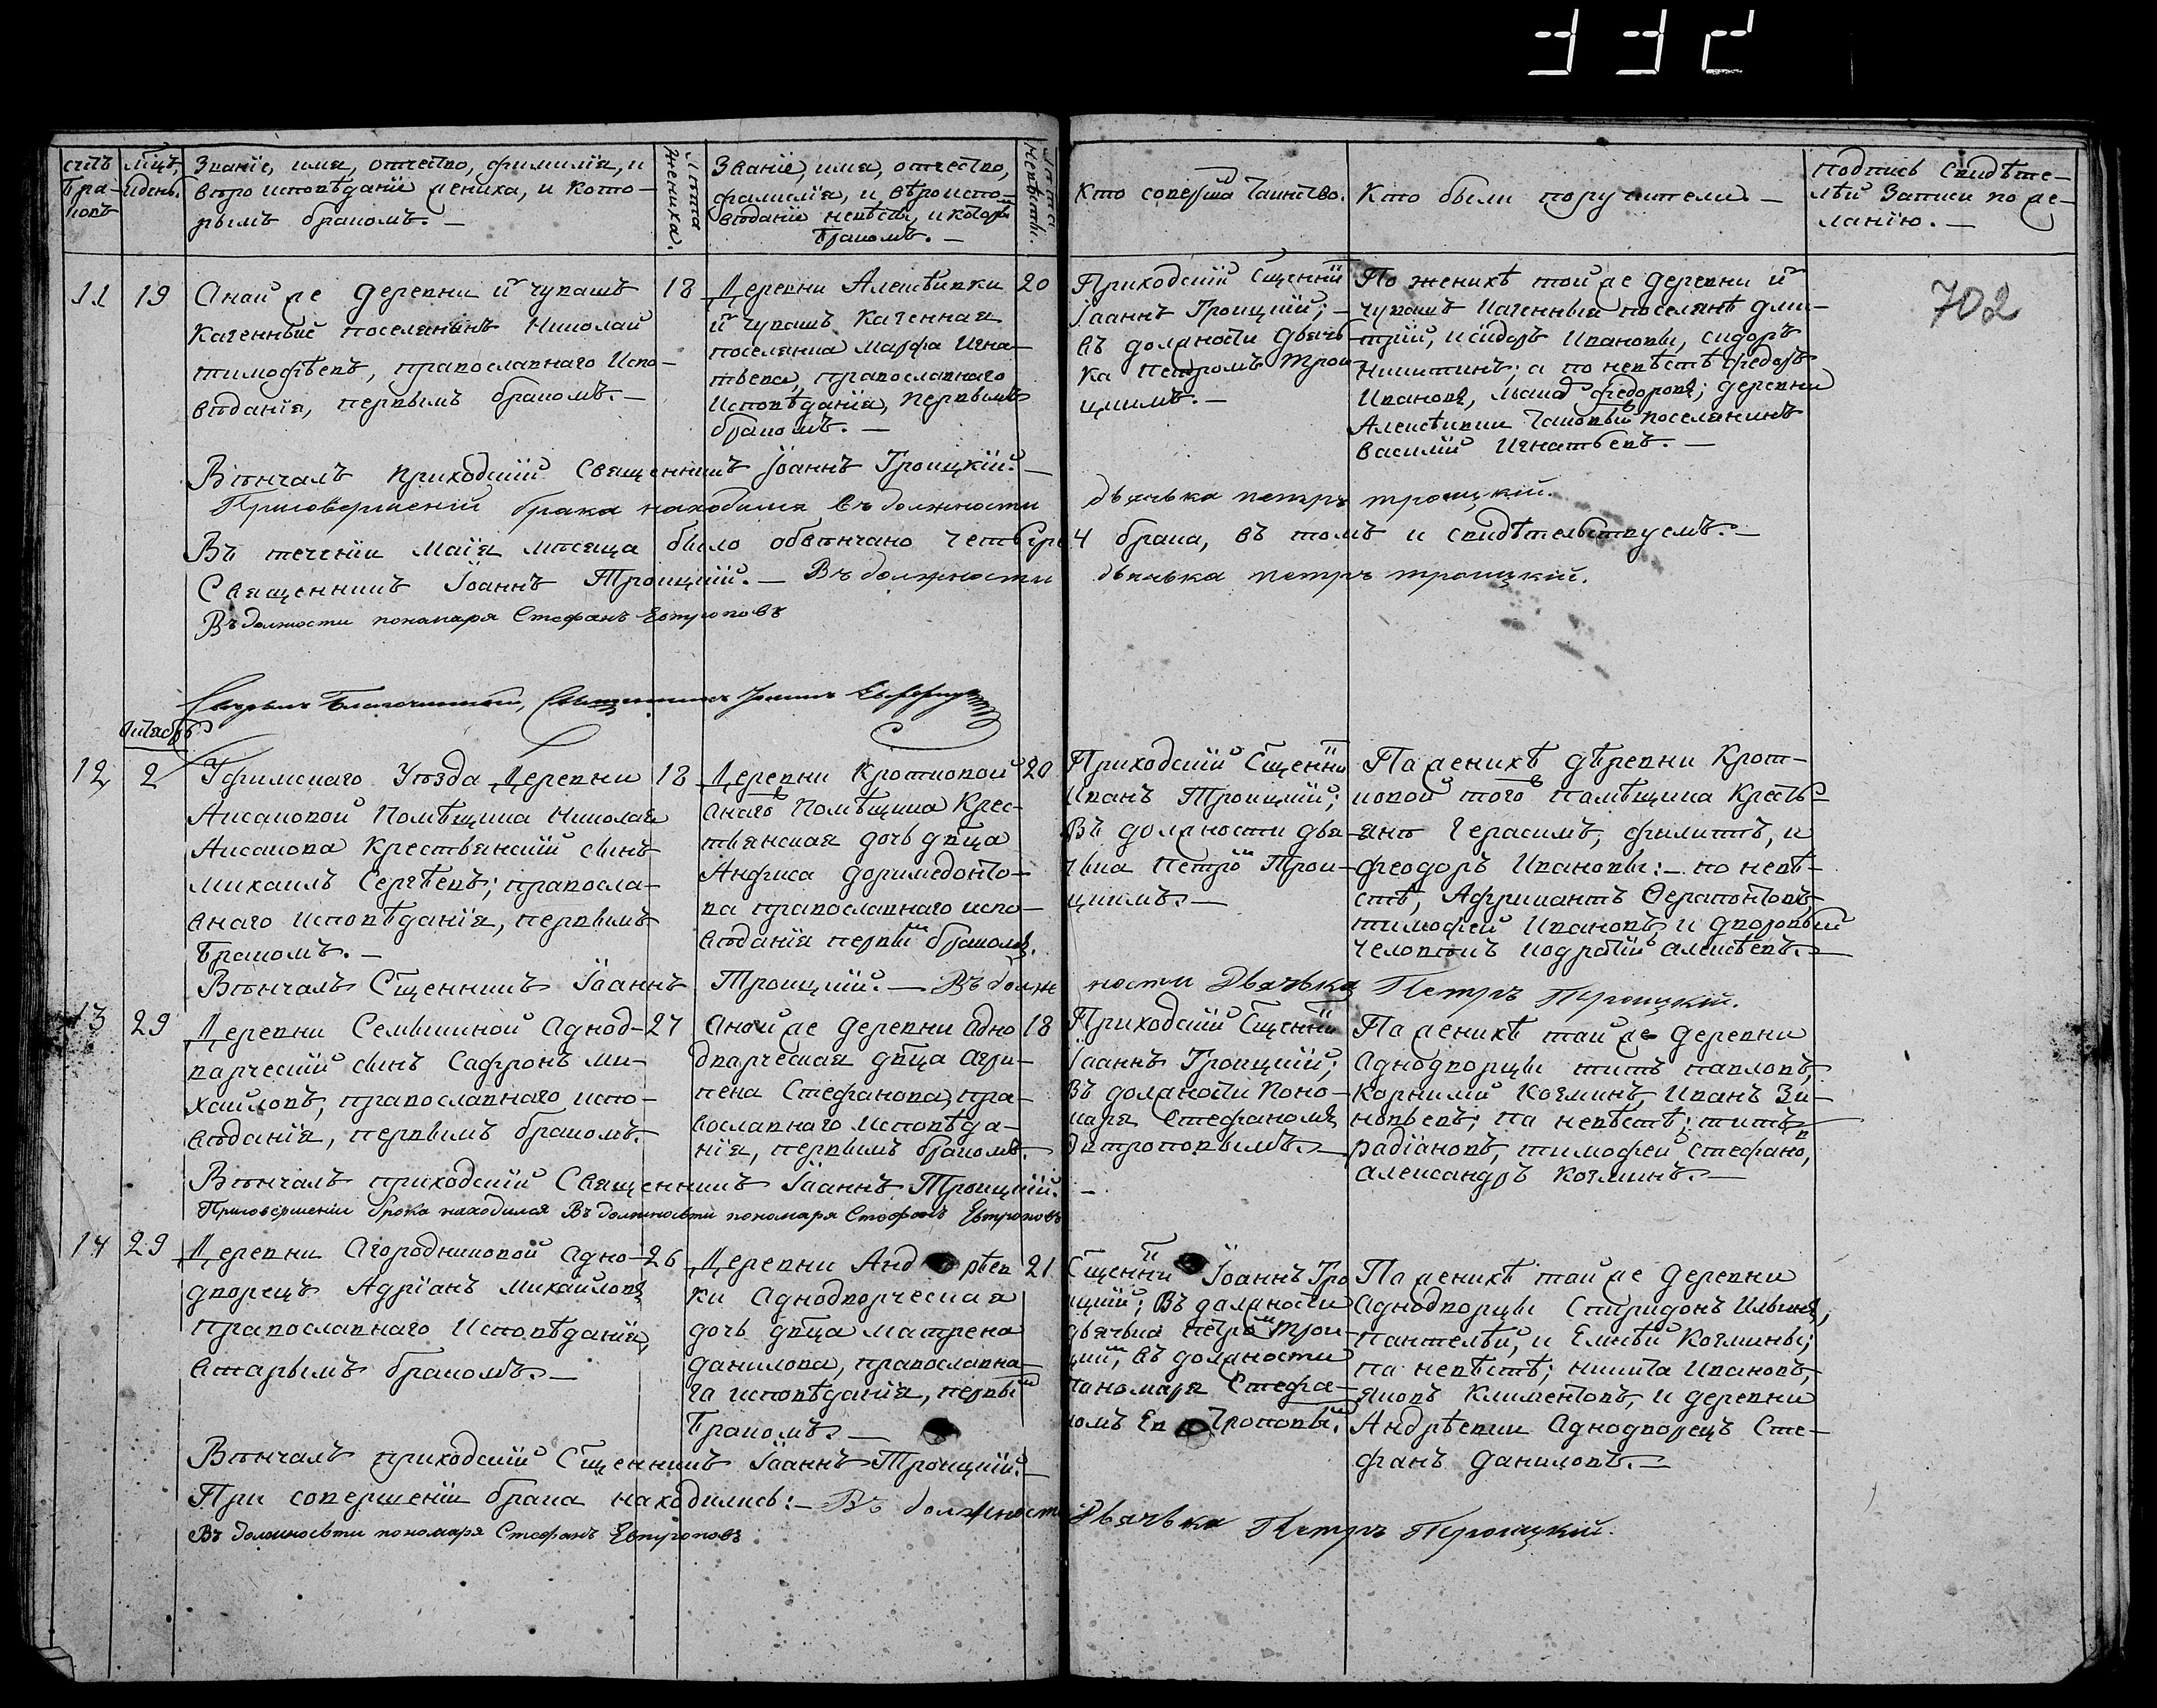 332
702
счтъ бра-ковъ
Мцъ, и день.
Званіе, имя, отчество, фимилія, и
вѣро исповѣданіе жениха, и кото-
рымъ бракомъ. —
Лѣта жениха.
Званіе, имя, отчество,
фамилія, и вѣроиспо-
вѣданіе невѣсты, и которы
бракомъ. —
Лѣта невѣсты.
Кто соверша Таинство.
Кто были поручители. —
подпись Свидѣте-
лѣй Записи по же-
ланію. —
11
19
Аной же деревни и чувашъ
Казенный поселянинъ Николай
тимофѣевъ, православнаго Испо-
вѣданія, первымъ бракомъ. —
18
Деревни Алексѣевки
и чувашъ Казенная
поселянка Марфа Игна-
тьева, православнаго
Исповѣданія, первымъ
бракомъ. —
20
Приходскій Сщенни
Іоаннъ Троицкій; —
въ должности дьячь-
ка Петромъ Трои
цкимъ. —
По женихѣ той же деревни и
чувашъ Казенный поселянъ дми-
трій, исидоръ Ивановы, сидоръ
Никитинъ; а по невѣстѣ федоръ
Ивановъ, федоровъ; деревни
Алексѣевки поселянинъ
василій Игнатьевъ. —
Вѣнчалъ приходскій Священникъ Іоаннъ Троицкій. —
Присовершеніи брака находился въ должности дьячька петръ троицкій.
Въ теченіи Маія мѣсяца было обвѣнчано четыре 4 брака, въ томъ и свидѣтельствуемъ. —
Священникъ Іоаннъ Троицкій. — Въ должности дьячька петръ троицкій.
Въ должности пономаря Стефанъ Евтроповъ
Благочинный, Священникъ Іоаннъ
Октябрь
12
2
Уфимскаго Уѣзда Деревни
Аксаковой Помѣщика Николая
Аксакова Крестьянскій сынъ
Михаилъ Сергѣевъ; правосла-
внаго исповѣданія, первымъ
бракомъ. —
18
Деревни Кротковой
онаго Помѣщика Крес-
тьянская дочь дѣца
Анфиса доримедонто-
ва православнаго испо-
вѣданія первы бракомъ.
20
Приходскій Сщенни
Иванъ Троицкій;
Въ должности дья-
чька Петро Трои-
цкимъ. —
Па женихѣ дѣревни Крот-
ковой того памѣщика Кресть-
янъ Герасимъ, филиппъ, и
феодоръ Ивановы: — по невѣ-
стѣ, Африкантъ Ѳерапонтовъ,
тимофей Ивановъ, и дворовый
человѣкъ кодратій алексѣевъ. —
Вѣнчалъ Сщенникъ Іоаннъ Троицкій. — Въ должности Дьячька Петръ Троицкій.
13
29
Деревни Семькиной Аднод-
ворческій сынъ Сафронъ ми-
хайловъ, православнаго испо-
вѣданія, первымъ бракомъ.
27
Аной же деревни Адно
дворческая дѣца агри-
пена Стефанова, пра-
вославнаго Исповѣда-
нія, первымъ бракомъ.
18
Приходскій Сщенни
Іоаннъ Троицкій;
Въ должности Поно-
маря Стефаномъ
Евтроповымъ. —
Па женихѣ тай же деревни
Аднодворцы титъ павловъ,
Корнилій Козминъ, Иванъ Зи-
новьевъ; па невѣстѣ; титъ
радіановъ, тимофей стефано,
александръ Козминъ. —
Вѣнчалъ приходскій Священникъ Іоаннъ Троицкій. —
Присовершеніи брока находился Въ должности пономаря Стефанъ Евтроповъ
14
29
Деревни Агородниковой Адно-
дворецъ Адріанъ Михайловъ
православнаго Исповѣданія,
вторымъ бракомъ. —
26
Деревни Анд рѣев
ки Аднодворческая
дочь дѣца матрена
данилова, православна-
га исповѣданія, первы
бракомъ. —
21
Сщенни Іоаннъ Тро
ицкій; Въ должности
дьячька петро Трои-
цки, въ должности
пономаря Стефа-
номъ Ев троповы.
Па женихѣ тай же деревни
Аднодворцы Спиридонъ Ильинъ,
Пантелѣй, и Елисѣй Козмины;
па невѣстѣ; никита Ивановъ,
яковъ Климентовъ, и деревни
Андрѣевки Аднодворецъ Сте-
фанъ даниловъ. —
Вѣнчалъ приходскій Сщенникъ Іоаннъ Троицкій. —
При совершеніи брака находились: — Въ должности Дьячька Петръ Троицкій.
Въ должности пономаря Стефанъ Евтроповъ